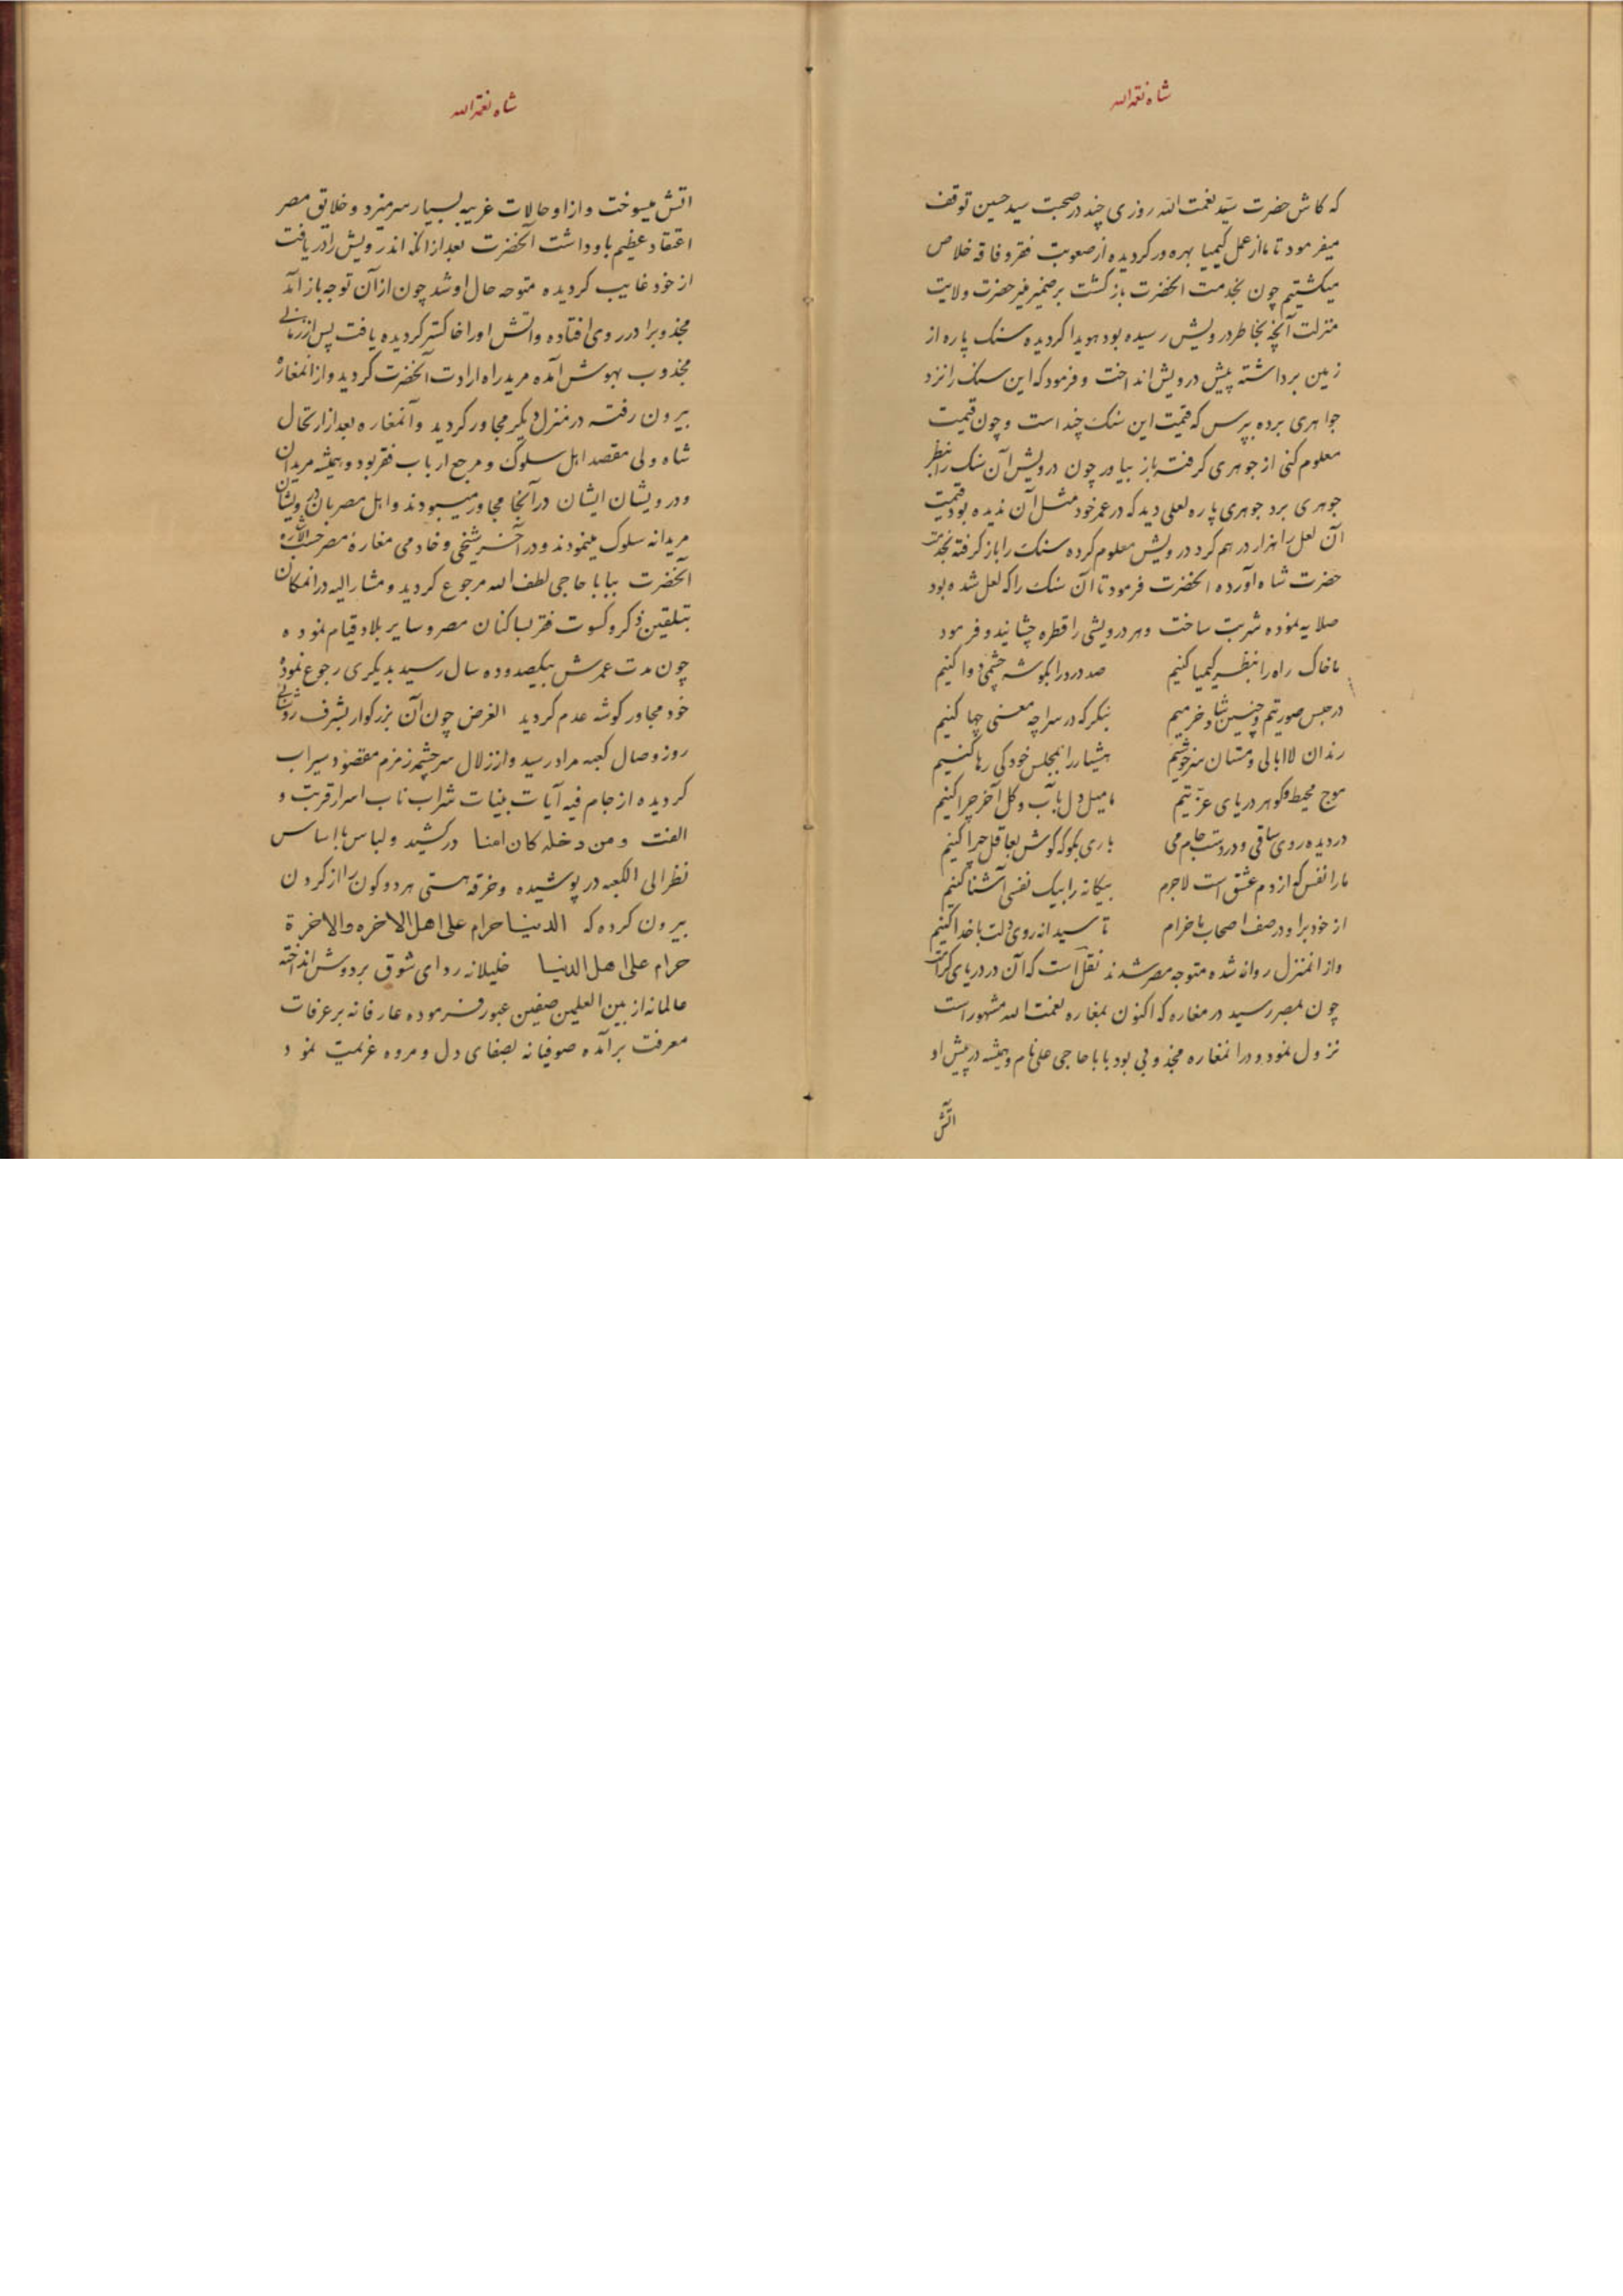 شاه نعمة الله
که کاش حضرت سید نعمت الله روزی چند در صحبت سید حسین توقف
میفرمود تا ما از عمل کیمیا بهره ور کردیده از صعوبت فقر و فاقه خلاص
میکشتیم چون بخدمت انحضرت باز کشت بر ضمیر منیر حضرت ولایت
منزلت آنچه بخاطر درویش رسیده بود هویدا کردیده سنک پاره از
زمین برداشته پیش درویش انداخت و فرمود که این سنک را نزد
جواهری برده بپرس که قیمت این سنک چند است و چون قیمت
معلوم کنی از جوهری کرفته باز بیاور چون درویش آن سنک را بنظر
جوهری برد جوهری پاره لعلی دید که در عمر خود مثل آن ندیده بود قیمت
آن لعل را هزار درهم کرد درویش معلوم کرده سنک را باز کرفته بخدمت
حضرت شاه آورده انحضرت فرمود تا آن سنک را که لعل شده بود
صلایه نموده شربت ساخت و هر درویشی را قطره چشانید و فرمود
ما خاک راه را بنظر کیمیا کنیم صد درد را بکوشه چشمی دوا کنیم
در حبس صورتیم و چنین شاد و خرمیم بنکر که در سراچه معنی چها کنیم
رندان لاابالی و مستان سرخوشیم هشیار را بمجلس خود کی رها کنیم
موج محیط و کوهر دریای عزتیم ما میل دل بآب و کل آخر چرا کنیم
در دیده روی ساقی و در دست جام می باری بکو که کوش بعاقل چرا کنیم
ما را نفس که از دم عشق است لاجرم بیکانه را بیک نفسی آشنا کنیم
از خود برا و در صف اصحاب ما خرام تا سیدانه روی دلت با خدا کنیم
و از انمنزل روانه شده متوجه مصر شدند نقل است که آن در دریای کرامت
چون بمصر رسید در مغاره که اکنون بمغاره نعمت الله مشهور است
نزول نمود و در انمغاره مجذوبی بود بابا حاجی علی نام و همیشه در پیش او
اتش
شاه نعمة الله
اتش میسوخت و از او حالات غریبه بسیار سر میزد و خلایق مصر
اعتقاد عظیم باو داشت آنحضرت بعد از انکه اندرویش را دریافت
از خود غایب کردیده متوجه حال او شد چون از آن توجه باز آمد
مجذوبرا در روی افتاده و اتش او را خاکستر کردیده یافت پس از زمانی
مجذوب بهوش آمده مرید راه ارادت آنحضرت کردید و از انمغاره
بیرون رفته در منزل دیکر مجاور کردید و آنمغاره بعد از ارتحال
شاه ولی مقصد اهل سلوک و مرجع ارباب فقر بود و همیشه مریدان
و درویشان ایشان در آنجا مجاور میبودند و اهل مصر بان درویشان
مریدانه سلوک مینمودند و در آخر شیخی و خادمی مغاره مصر حسب الاشاره
آنحضرت ببابا حاجی لطف الله مرجوع کردید و مشار الیه در انمکان
بتلقین ذکر و کسوت فقر بساکنان مصر و سایر بلاد قیام نموده
چون مدت عمرش بیکصد و ده سال رسید بدیکری رجوع نموده
خود مجاور کوشه عدم کردید الغرض چون آن بزرکوار بشرف
روز وصال کعبه مراد رسید و از زلال سرچشمه زمزم مقصود سیراب
کردیده از جام فیه آیات بینات شراب ناب اسرار قربت و
الفت و من دخله کان امنا درکشید و لباس با اساس
نظر الی الکعبه در پوشیده و خرقه هستی هر دو کون را از کردن
بیرون کرده که الدنیا حرام علی اهل الاخره والاخرة
حرام علی اهل الدنیا خلیلانه ردای شوق بر دوش انداخته
عالمانه از بین العلمین صفین عبور فرموده عارفانه بر عرفات
معرفت برآمده صوفیانه بصفای دل و مروه عزیمت نمود